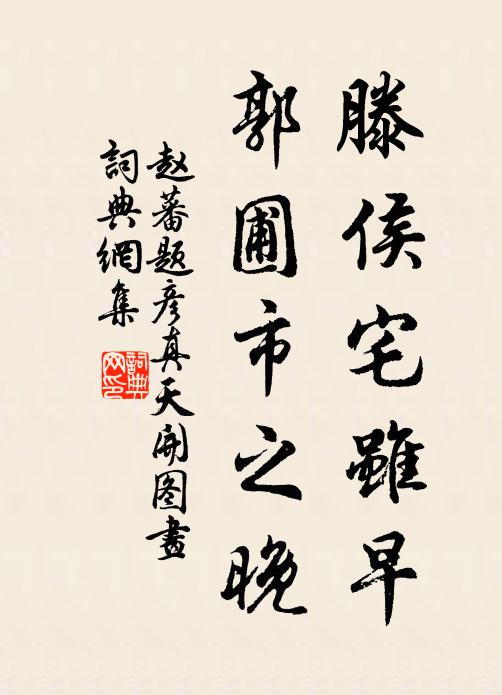 滕侯宅雖早
郭圃市之晚
赵蕃题彦真天开图畫
詞典網集
詞典网印